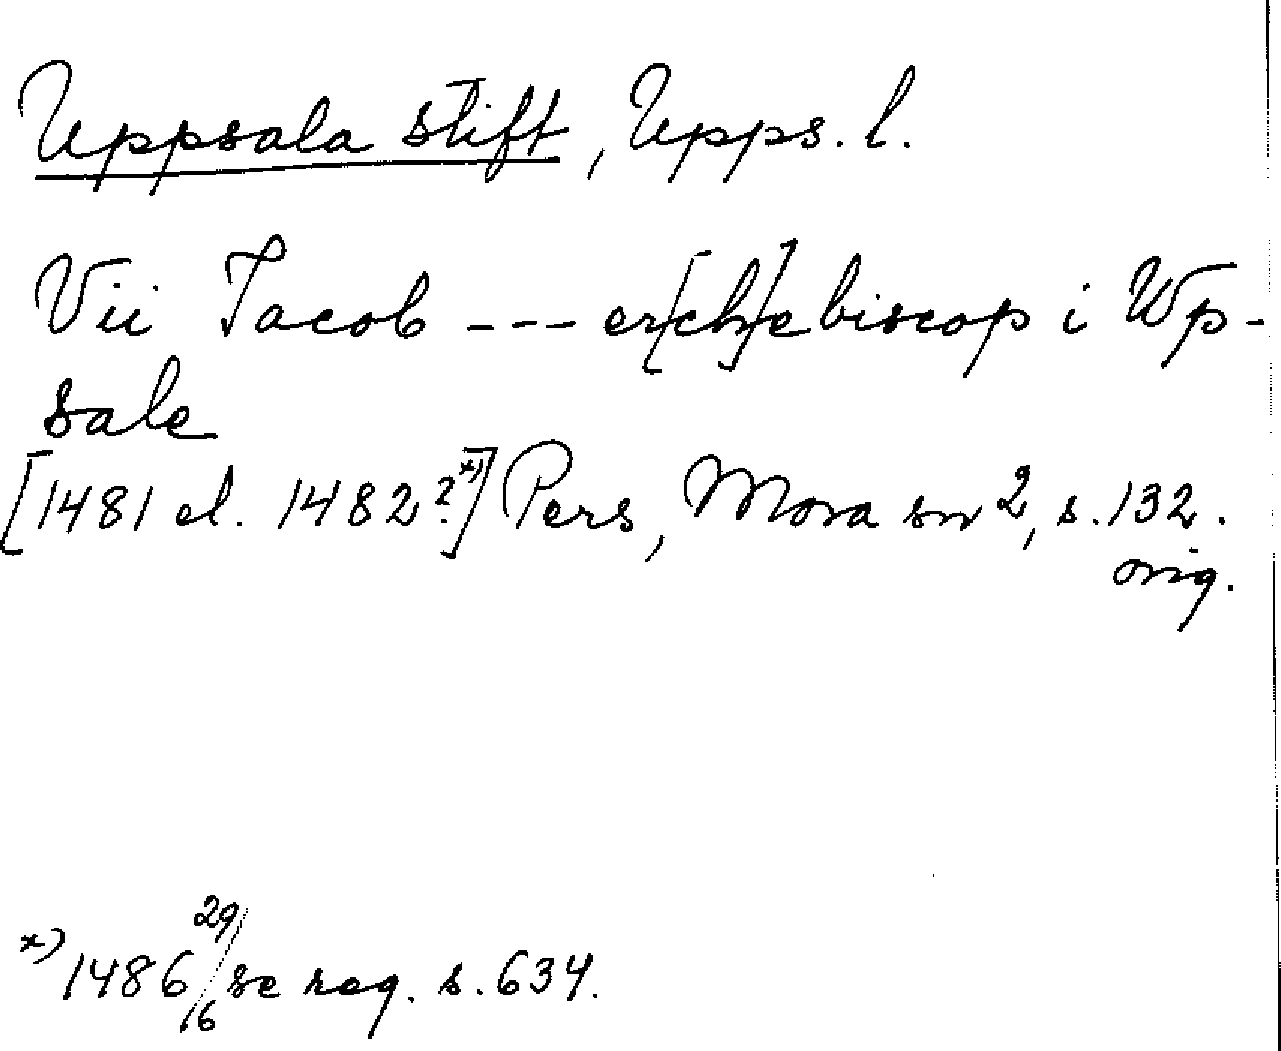 Uppsala stift, Upps. l.
Vii Jacob --- er[ch]e biscop i Wp-
sale
[1481 el. 1482?x)] Pers, Mora sn 2, s. 132.
orig.
x) 1486 29/6 se reg. s. 634.